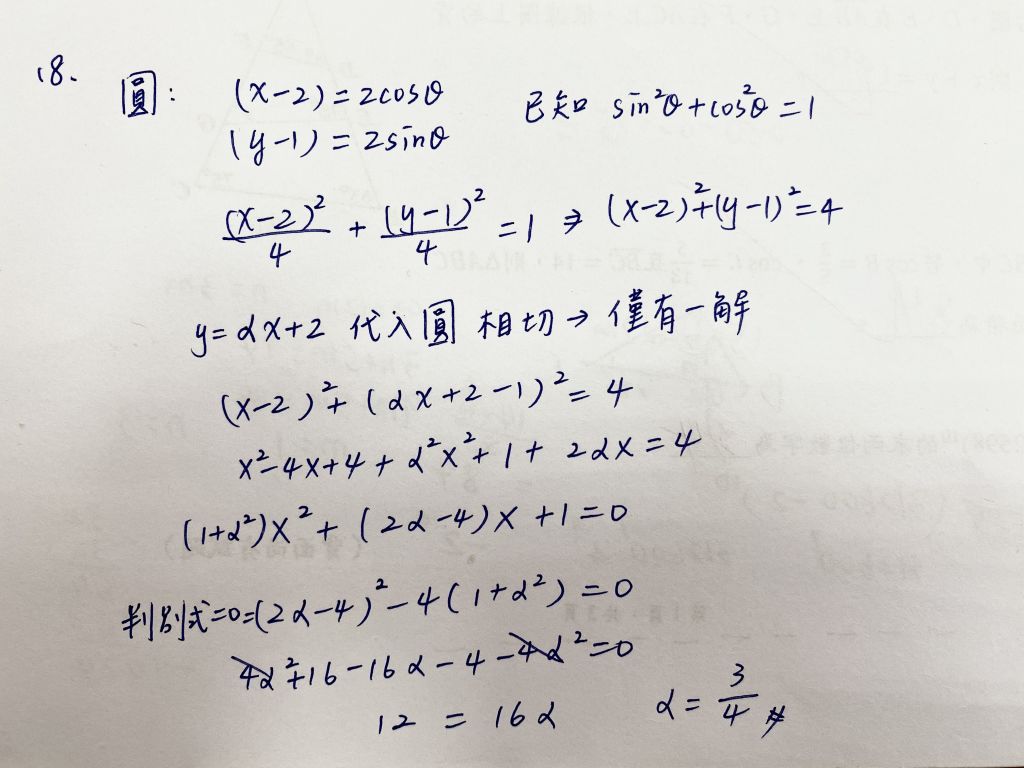 18.
圓: (x-2)=2cosθ 已知 sin²θ+cos²θ=1
(y-1)=2sinθ
(x-2)²/4 + (y-1)²/4 =1 ⇒ (x-2)²+(y-1)²=4
y=αx+2 代入圓 相切→僅有一解
(x-2)²+(αx+2-1)²=4
x²-4x+4+α²x²+1+2αx=4
(1+α²)x²+(2α-4)x+1=0
判別式=0=(2α-4)²-4(1+α²)=0
4α²+16-16α-4-4α²=0
12 = 16α α=3/4 #